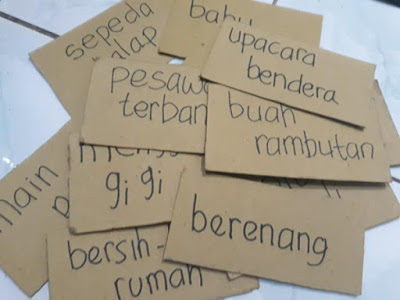 sepeda
alap
upacara
bendera
pesawa
terban
buah
rambutan
gi gi
main
berenang
bersih-
rumah